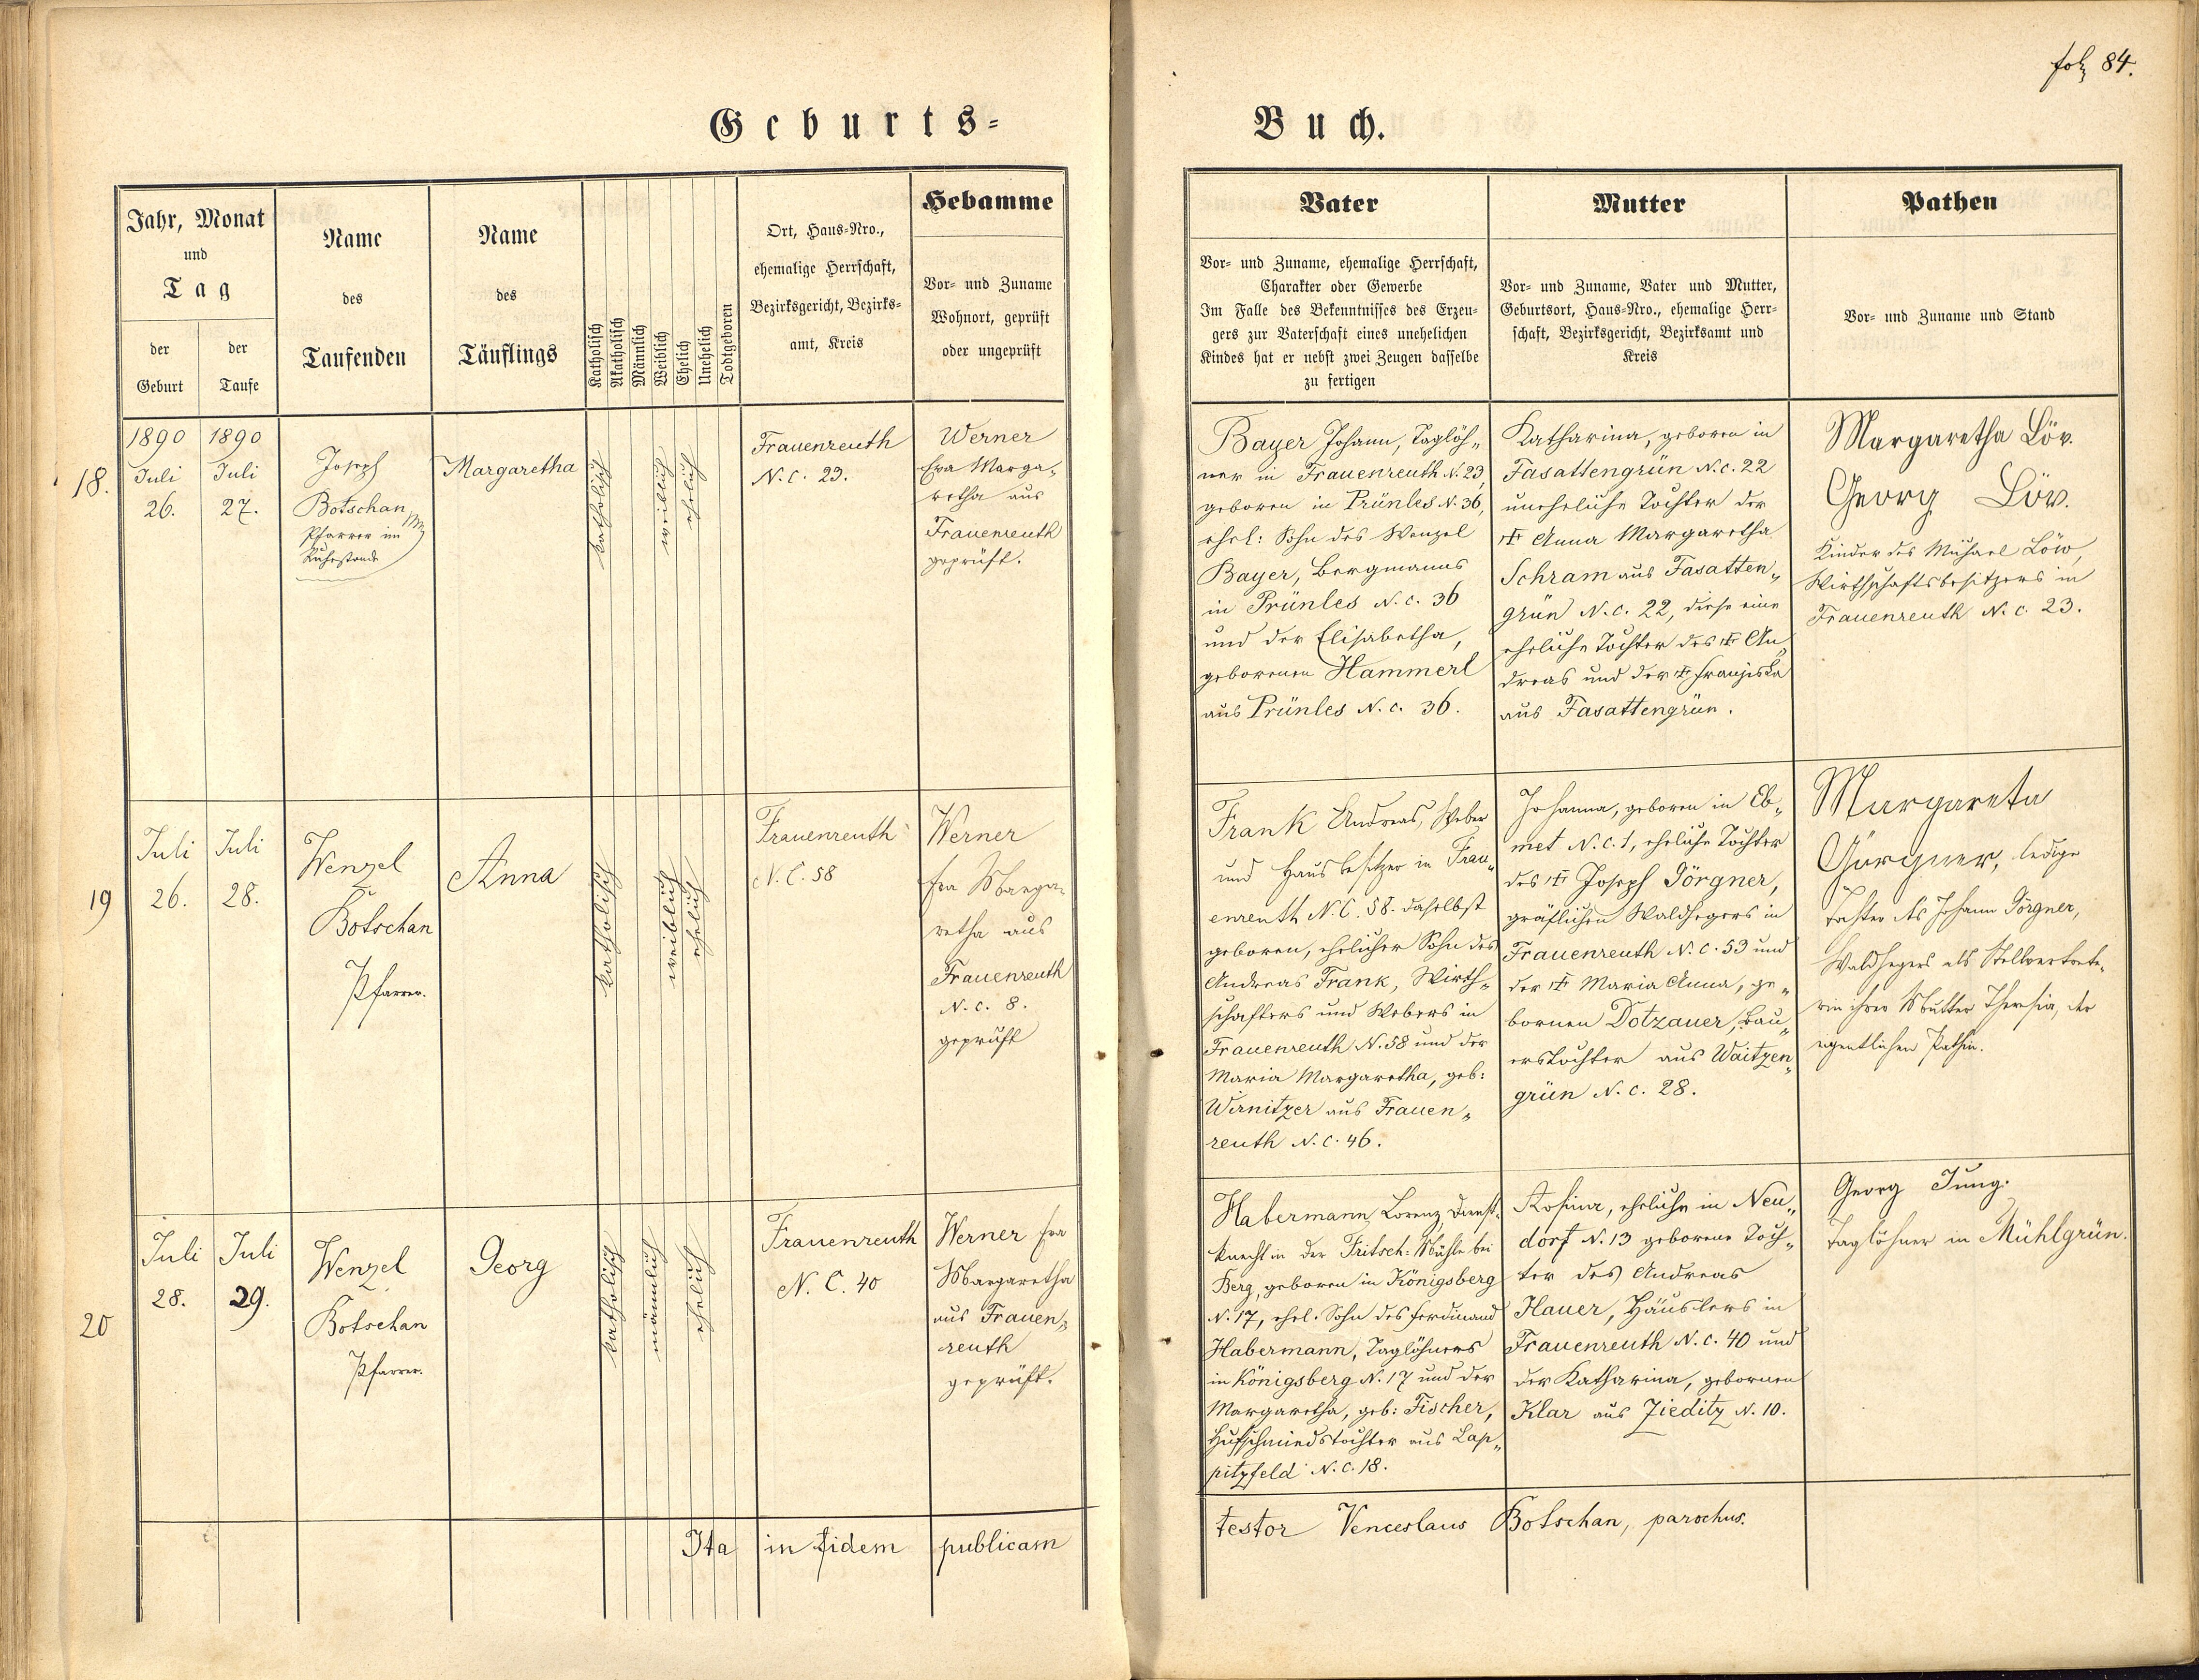 fol. 84.
Geburts=
Buch.
Jahr, Monat
und
Tag
der
Geburt
der
Taufe
Name
des
Taufenden
Name
des
Täuflings
Katholisch
Akatholisch
Männlich
Weiblich
Ehelich
Unehelich
Todtgeboren
Ort, Haus=Nro.,
ehemalige Herrschaft,
Bezirksgericht, Bezirks=
amt, Kreis
Hebamme
Vor= und Zuname
Wohnort, geprüft
oder ungeprüft
Vater
Vor= und Zuname, ehemalige Herrschaft,
Charakter oder Gewerbe
Im Falle des Bekenntnisses des Erzeu=
gers zur Vaterschaft eines unehelichen
Kindes hat er nebst zwei Zeugen dasselbe
zu fertigen
Mutter
Vor= und Zuname, Vater und Mutter,
Geburtsort, Haus=Nro., ehemalige Herr=
schaft, Bezirksgericht, Bezirksamt und
Kreis
Pathen
Vor= und Zuname und Stand
18.
1890
Juli
26.
1890
Juli
27.
Joseph
Botschan
Pfarrer im
Ruhestande
Margaretha
katholisch
weiblich
ehelich
Frauenreuth
N.C. 23.
Werner
Eva Marga„
retha aus
Frauenreuth
geprüft.
Bayer Johann, Taglöh„
ner in Frauenreuth N. 23,
geboren in Prünles N. 36,
ehel: Sohn des Wenzel
Bayer, Bergmanns
in Prünles N. c. 36
und der Elisabetha,
geborenen Hammerl
aus Prünles N. c. 36.
Katharina, geboren in
Fasattengrün N. c. 22
uneheliche Tochter der
† Anna Margaretha
Schram aus Fasatten„
grün N. c. 22, diese eine
eheliche Tochter des † An„
dreas und der † Franziska
aus Fasattengrün.
Margaretha Löv.
Georg Löv.
Kinder des Michael Löw,
Wirthschaftsbesitzers in
Frauenreuth N. c. 23.
19
Juli
26.
Juli
28.
Wenzel
Botschan
Pfarrer.
Anna
katholisch
weiblich
ehelich
Frauenreuth
N. C. 58
Werner
Eva Marga„
retha aus
Frauenreuth
N. c. 8.
geprüft
Frank Andreas, Weber
und Hausbesitzer in Frau„
enreuth N. C. 58. daselbst
geboren, ehelicher Sohn des
Andreas Frank, Wirth„
schafters und Webers in
Frauenreuth N. 58 und der
Maria Margaretha, geb:
Wirnitzer aus Frauen„
reuth N. C. 46.
Johanna, geboren in Eb„
met N. c. 1, eheliche Tochter
des † Joseph Görgner,
gräflichen Waldhegers in
Frauenreuth N. c. 53 und
der † Maria Anna, ge„
bornen Dotzauer, Bau„
erstochter aus Waitzen„
grün N. c. 28.
Margareta
Görgner, ledige
Tochter des Johann Görgner,
Waldhegers als Stellvertrete„
rin ihrer Mutter Theresia, der
eigentlichen Pathin.
20
Juli
28.
Juli
29.
Wenzel
Botschan
Pfarrer.
Georg
katholisch
männlich
ehelich
Frauenreuth
N. C. 40
Werner Eva
Margaretha
aus Frauen„
reuth
geprüft.
Habermann Lorenz, Dienst„
knecht in der Fritsch: Mühle bei
Berg, geboren in Königsberg
N. 17, ehel. Sohn des Ferdinand
Habermann, Taglöhners
in Königsberg N. 17 und der
Margaretha, geb: Fischer,
Hufschmiedstochter aus Lap„
pitzfeld N. C. 18.
Rosina, eheliche in Neu„
dorf N. 13 geborene Toch„
ter des Andreas
Hauer, Häuslers in
Frauenreuth N. c. 40 und
der Katharina, gebornen
Klar aus Zieditz N. 10.
Georg Jung.
Taglöhner in Mühlgrün.
Ita in fidem publicam
testor Venceslaus Botschan, parochus.